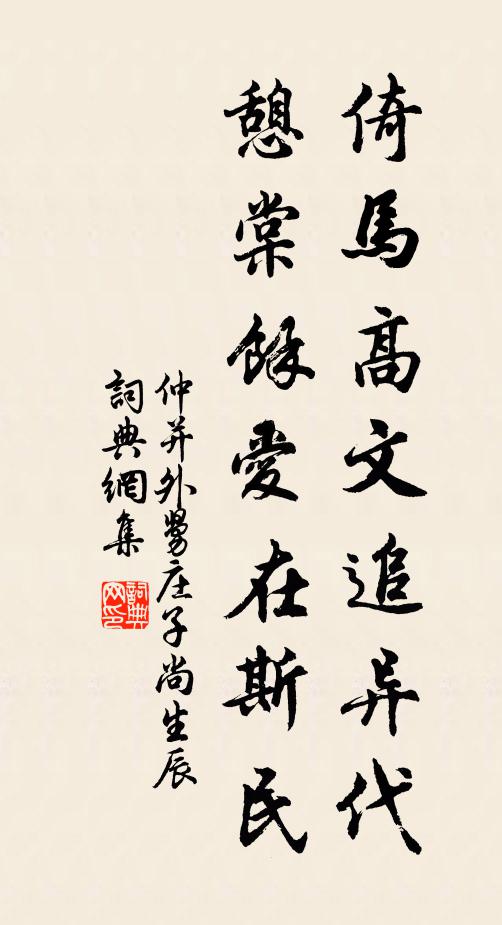 倚馬高文追异代
憩棠餘愛在斯民
仲并外舅庄子尚生辰
詞典網集
詞典网印